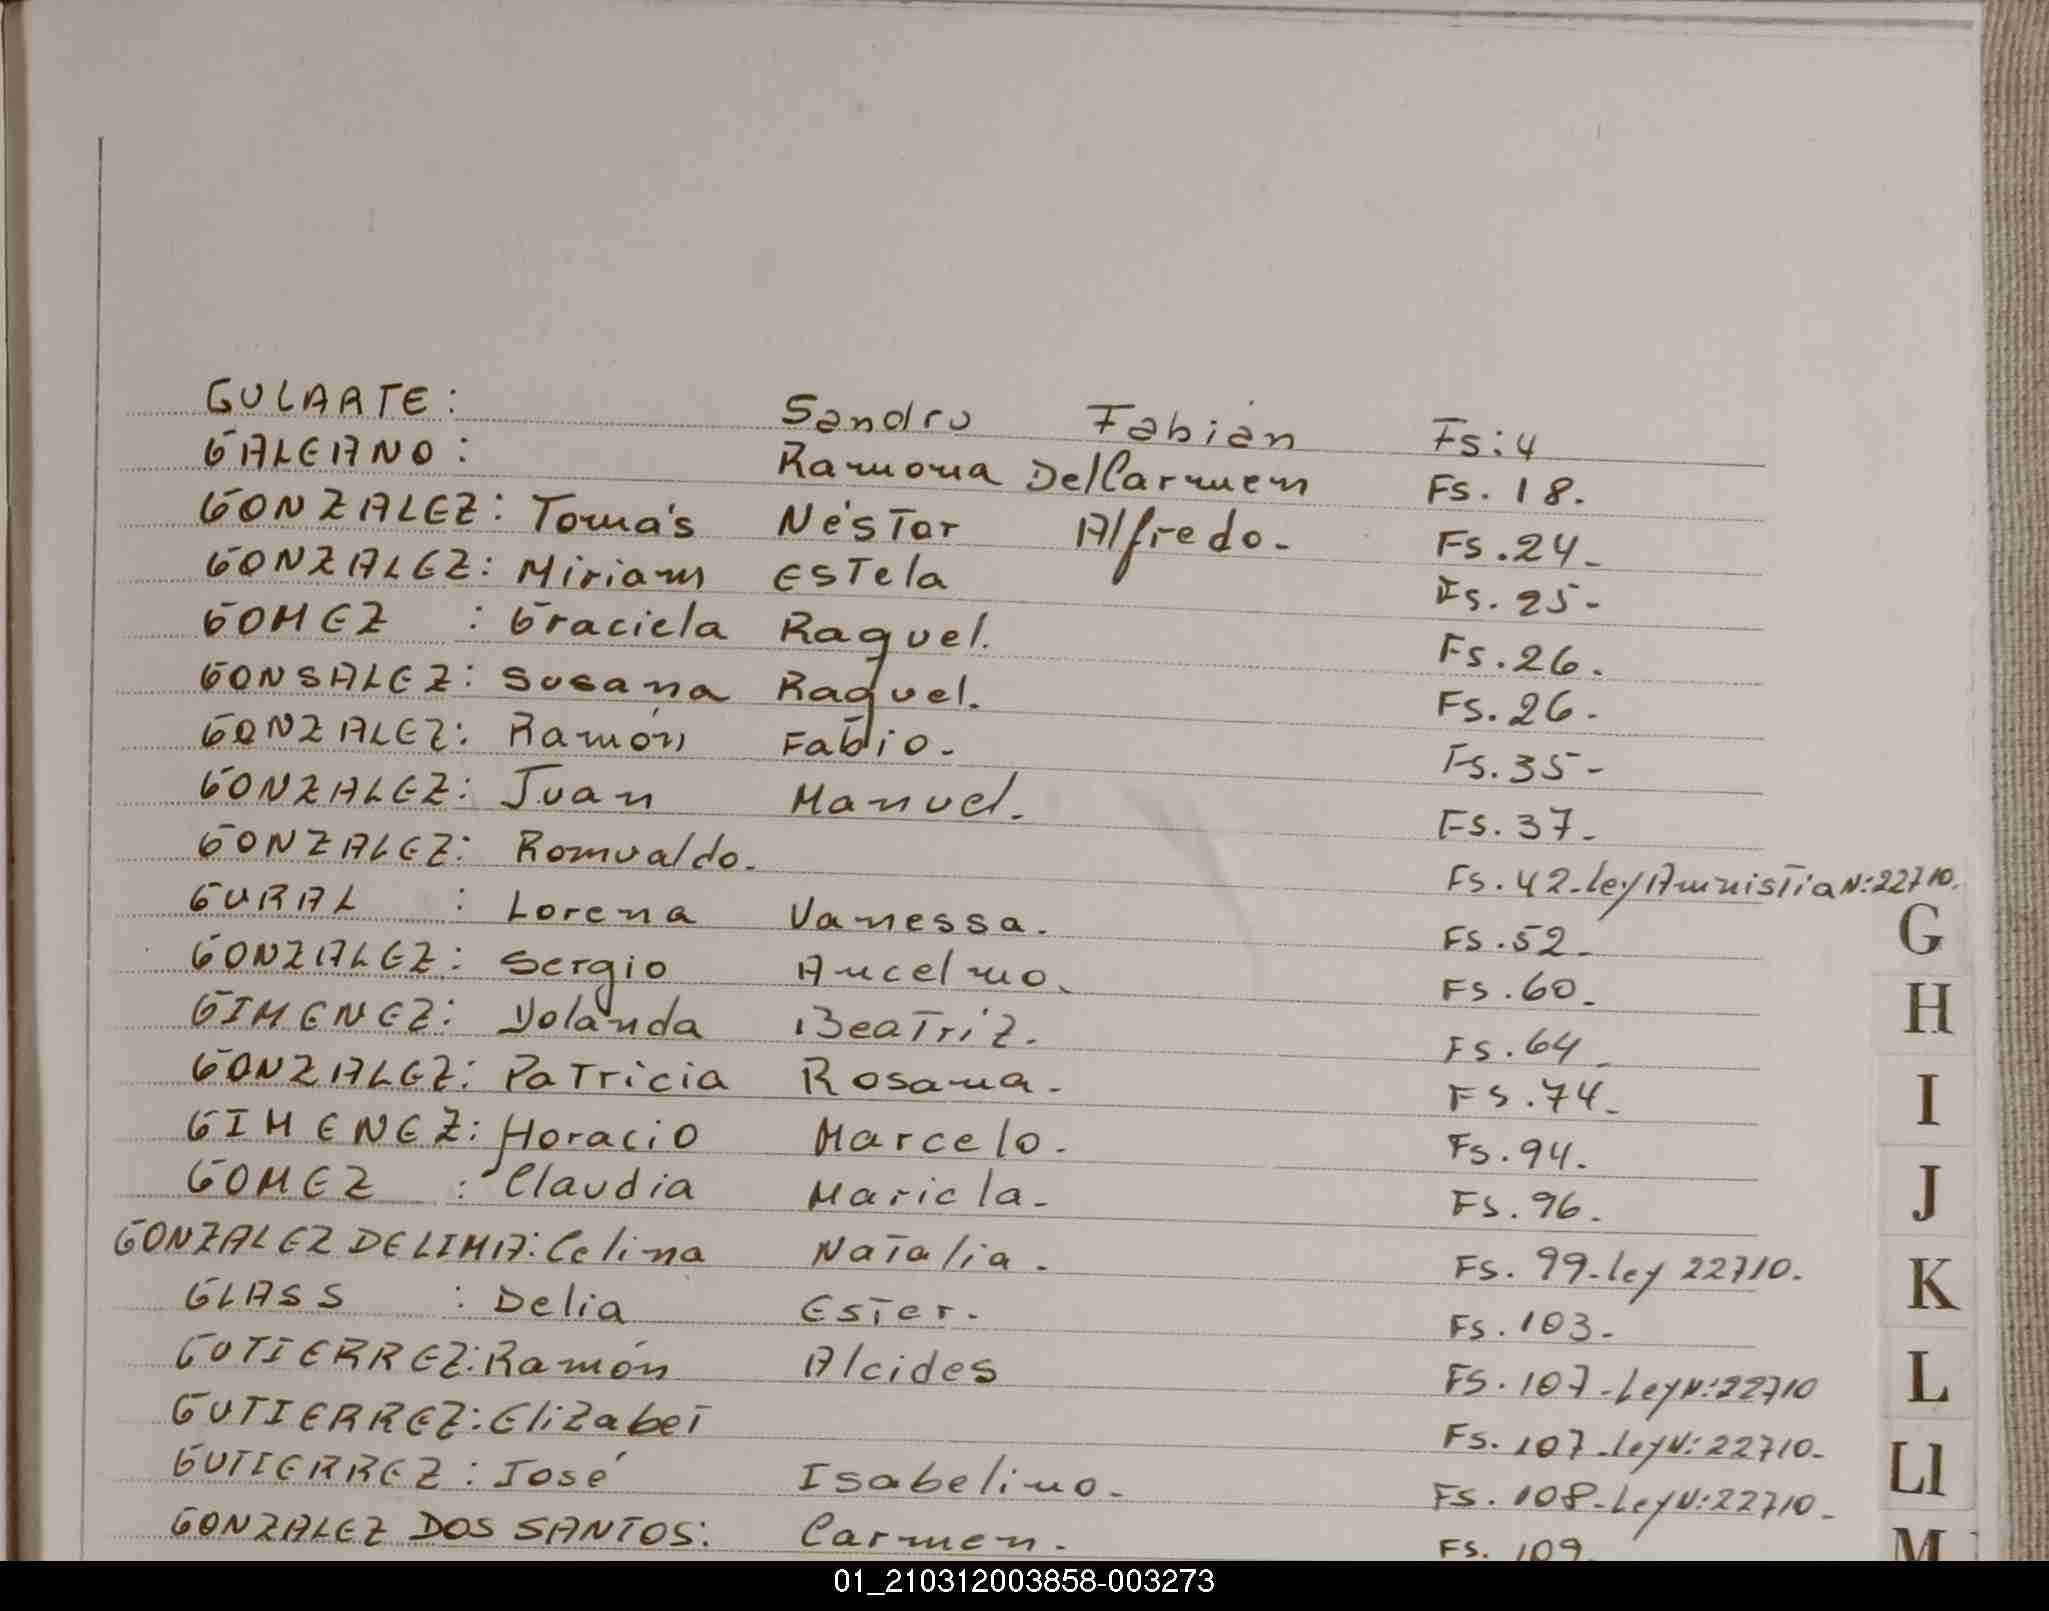 GULARTE: Sandro Fabián Fs: 4
GALEANO: Ramona Del Carmen Fs. 18.
GONZALEZ: Tomás Néstor Alfredo. Fs. 24_
GONZALEZ: Miriam Estela Fs. 25-
GOMEZ : Graciela Raquel. Fs. 26.
GONSALEZ: Susana Raquel. Fs. 26-
GONZALEZ: Ramón Fabio. Fs. 35-
GONZALEZ: Juan Manuel. Fs. 37-
GONZALEZ: Romualdo. Fs. 42-Ley Amnistia N:22710.
GURAL : Lorena Vanessa. Fs. 52_
GONZALEZ: Sergio Ancelmo. Fs. 60_
GIMENEZ: Yolanda Beatriz. Fs. 64_
GONZALEZ: Patricia Rosana. Fs. 74_
GIMENEZ: Horacio Marcelo. Fs. 94.
GOMEZ : Claudia Mariela. Fs. 96.
GONZALEZ DELIMA: Celina Natalia. Fs. 99-Ley 22710.
GLASS : Delia Ester. Fs. 103-
GUTIERREZ: Ramón Alcides Fs. 107-Ley N:22710
GUTIERREZ: Elizabet Fs. 107-Ley N:22710-
GUTIERREZ: José Isabelino. Fs. 108-Ley N:22710-
GONZALEZ DOS SANTOS: Carmen. Fs. 109
G
H
I
J
K
L
Ll
M
01_210312003858-003273